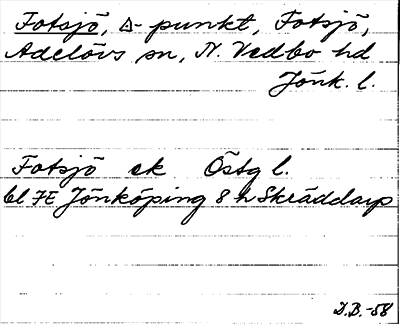 Fotsjö, △-punkt, Fotsjö,
Adelövs sn, N. Vedbo hd
Jönk. l.
Fotsjö ek Östg l.
bl 7E Jönköping 8 h Skräddarp
D.B. -58